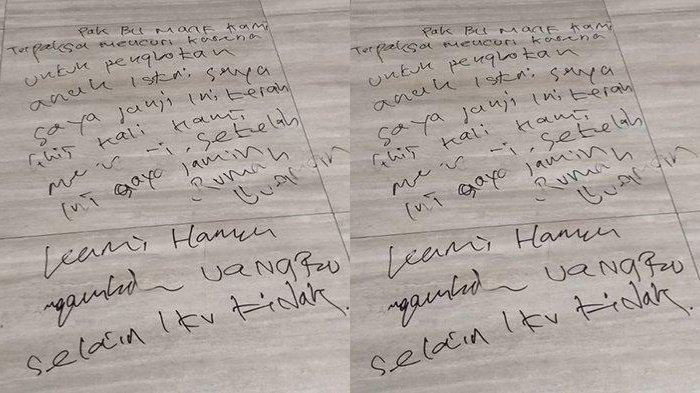 Pak Bu Maaf Kami
Terpaksa mencuri karena
untuk pengobatan
anak Istri saya
saya janji ini terah
kali kami
setelah
Ini saya jamin
Rumah
Kami Hanya
ngambil uang
selain Itu tidak.
Pak Bu Maaf Kami
Terpaksa mencuri karena
untuk pengobatan
anak Istri saya
saya janji ini terah
kali kami
setelah
Ini saya jamin
Rumah
Kami Hanya
ngambil uang
selain Itu tidak.